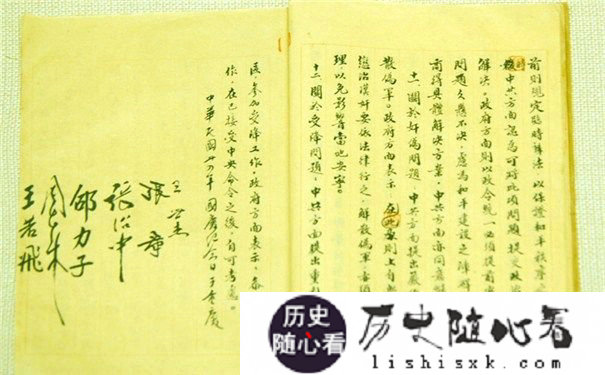 前則規定臨時辦法,以保證和平秩序
中共方面認為可對此項問題,提交政
解決。政府方面則以政令統一必須提前
問題久懸不決,慮為和平建設之障碍
商得具體解決方案,中共方面亦同意
十一、關於奸偽問題,中共方面提出嚴
散偽軍。政府方面表示,在此原則上自
懲治漢奸要依法律行之,解散偽軍亦須
理,以免影響當地安寧。
十二、關於受降問題,中共方面提出重
區,參加受降工作。政府方面表示,參
作,在已接受中央命令之後,自可考慮。
中華民國卅四年國慶紀念日于重慶
王世杰
張羣
張治中
邵力子
周恩來
王若飛
历史
随心看
历史随心看
lishisxk.com